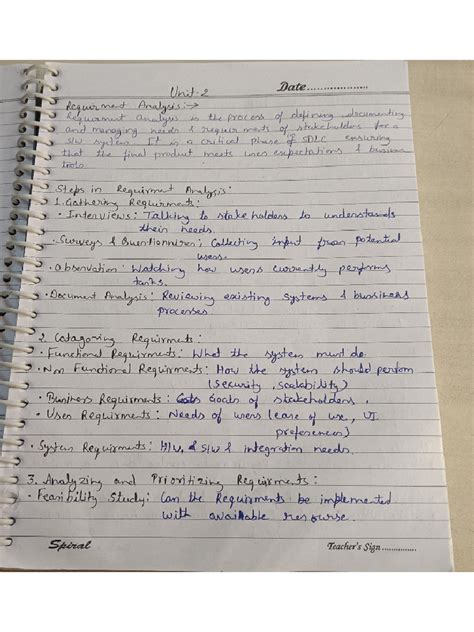 Unit-2
Date
Requirment Analysis:→
Requirment analysis is the process of defining documenting
and managing needs & requirments of stakeholders for a
S/W system. It is a critical phase of SDLC ensuring
that the final product meets uses expectations & business
tools.
Steps in Requirment Analysis:
1. Gathering Requirments:
• Interviews: Talking to stakeholders to understands
their needs.
• Surveys & Questionnaires: Collecting input from potential
users.
• Observation: Watching how users currently performs
tasks.
• Document Analysis: Reviewing existing systems & bussiness
processes
2. Catagorizing Requirments:
• Functional Requirments: What the system must do.
• Non Functional Requirments: How the system should perform
(security, scalability)
• Business Requirments: Goals of stakeholders.
• User Requirments: Needs of users (ease of use, UI
preferences)
• System Requirments: H/W, & S/W & integration needs.
3. Analyzing and Prioritizing Requirments:
• Feasibility Study: Can the Requirments be implemented
with available resourse.
Spiral
Teacher's Sign